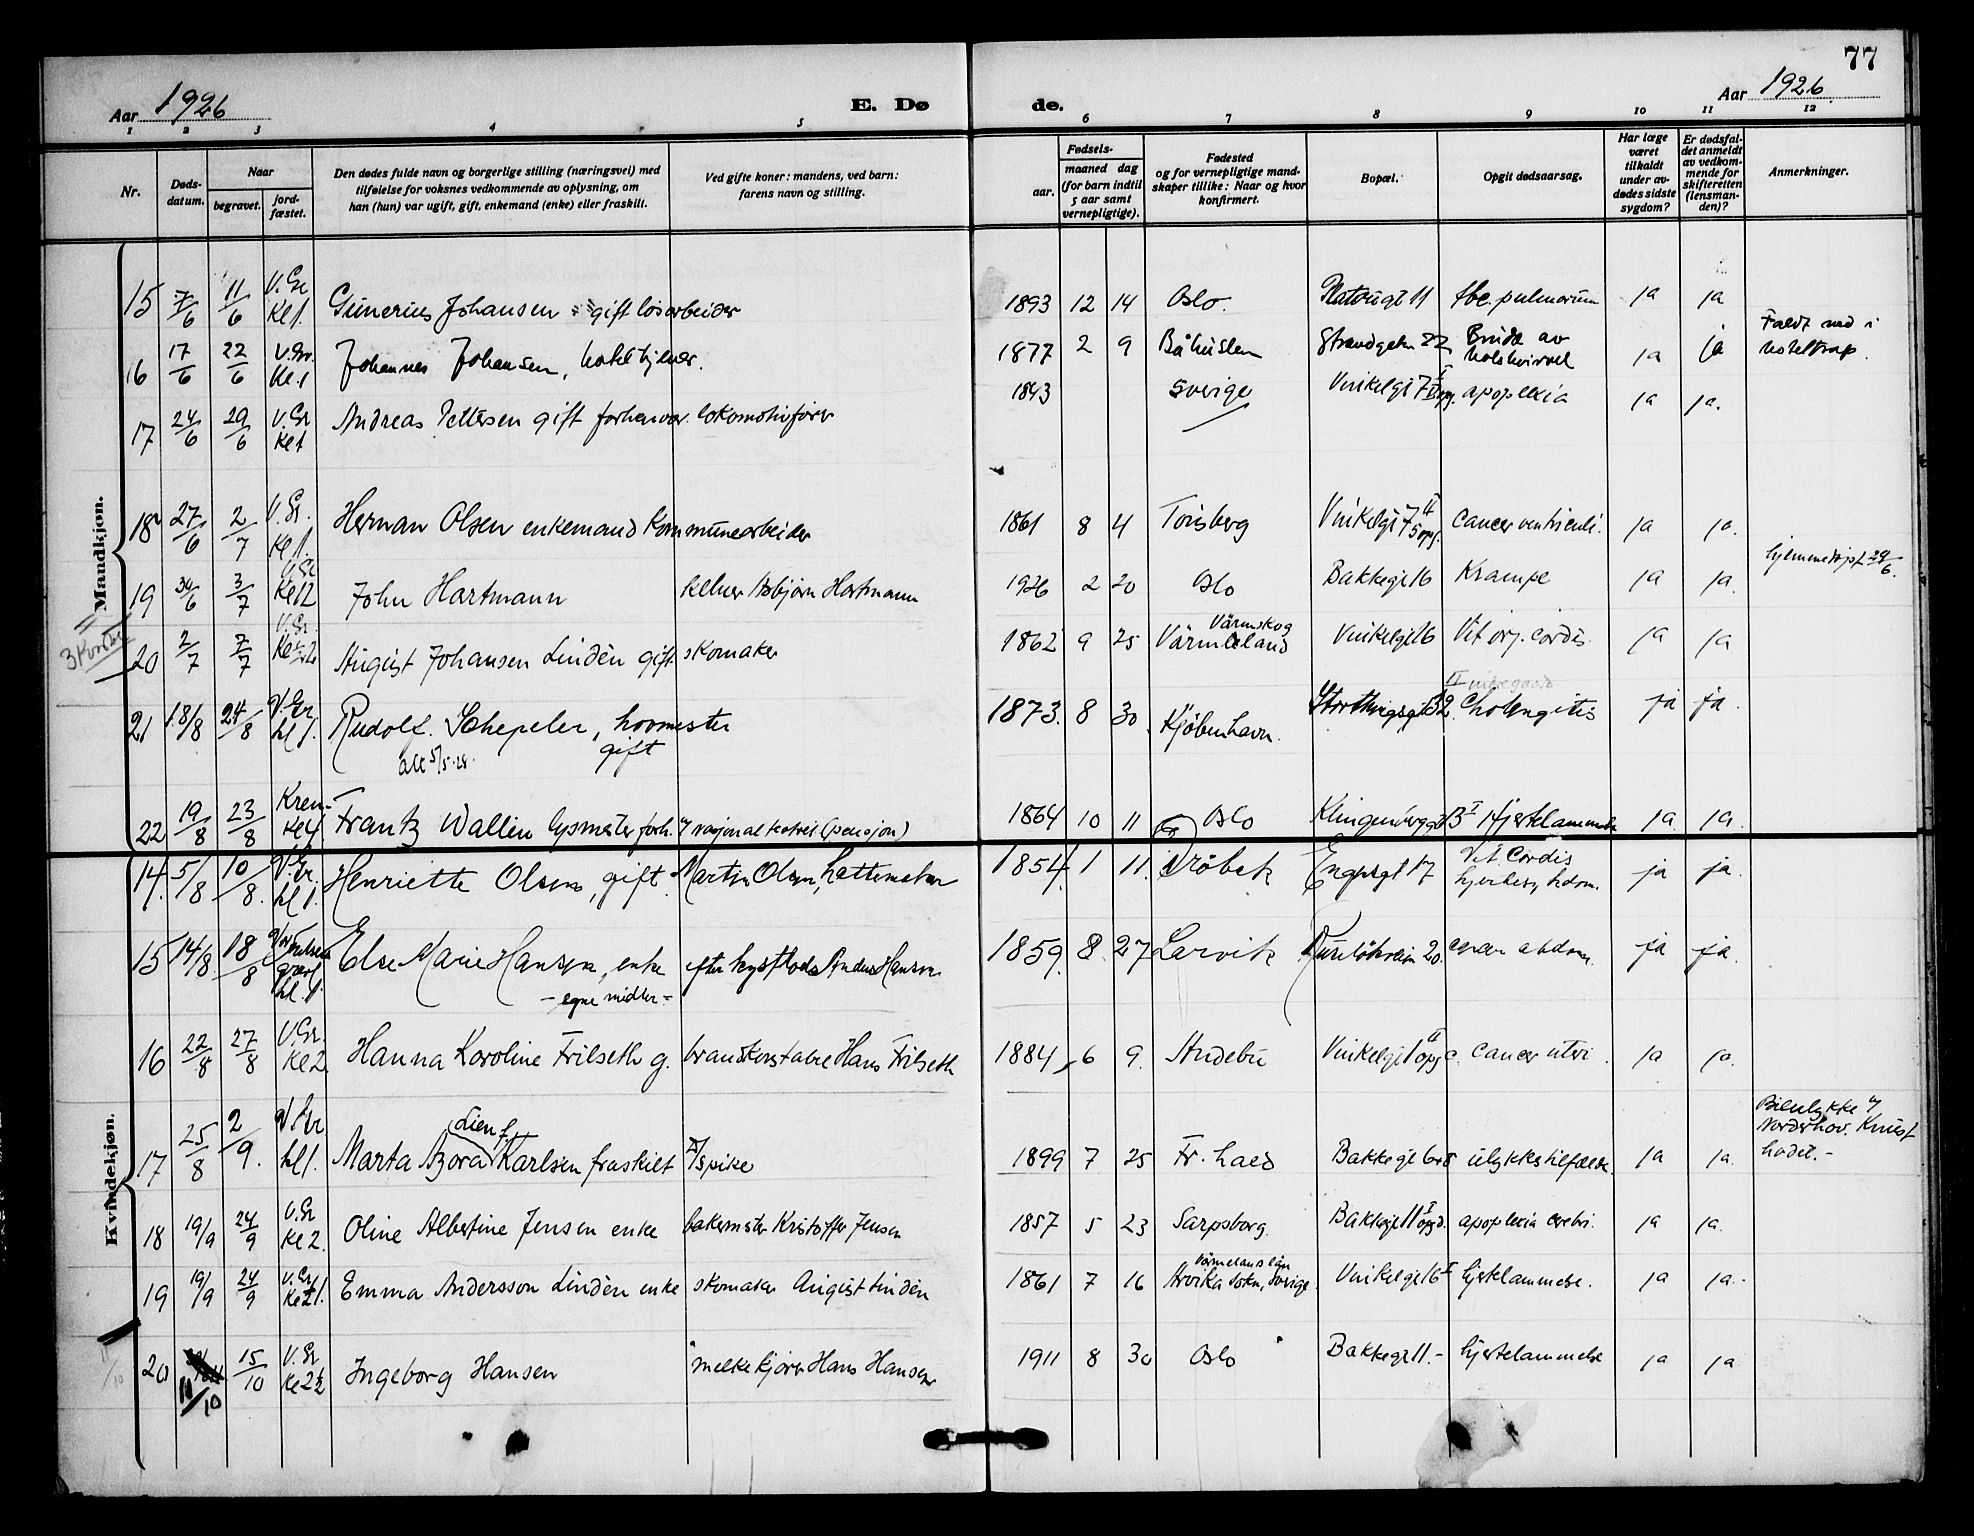 77
Aar 1926 E. Dø de. Aar 1926
1 2 3 4 5 6 7 8 9 10 11 12
Nr. Døds-datum. Naar begravet. jord-fæstet. Den dødes fulde navn og borgerlige stilling (næringsvei) med tilføielse for voksnes vedkommende av oplysning, om han (hun) var ugift, gift, enkemand (enke) eller fraskilt. Ved gifte koner: mandens, ved barn: farens navn og stilling. Fødsels- aar. maaned dag (for barn indtil 5 aar samt vernepligtige). Fødested og for vernepligtige mand-skaper tillike: Naar og hvor konfirmert. Bopæl. Opgit dødsaarsag. Har læge været tilkaldt under av-dødes sidste sygdom? Er dødsfal-det anmeldt av vedkom-mende for skifteretten (lensman-den)? Anmerkninger.
Mandkjøn.
15 7/6 11/6 V. Gr Kl 1. Gunerius Johansen gift løsarbeider 1893 12 14 Oslo. 11 tbc. pulmorum ja ja
16 17/6 22/6 V. Gr. Kl. 1 Johannes Johansen, 1877 2 9 Båhuslen Strandgaten 22 Brudd av halshvirvel ja ja Faldt ned i hoteltrap.
17 24/6 29/6 V. Gr Kl 1 Andreas Pettersen gift forhenvær. lokomotivfører 1843 Sverige Vinkelgt 7 apoplexia ja ja.
18 27/6 2/7 V. Gr. Kl 1. Herman Olsen enkemand Kommunearbeider 1861 8 4 Tønsberg Vinkelgt 7 II cancer ventriculi. ja ja.
19 30/6 3/7 V. Gr Kl 2 John Hartmann kelner Asbjørn Hartmann 1926 2 20 Oslo Bakkegt 16 Krampe ja ja. hjemmedøpt 29/6.
3 Korrbr
20 2/7 7/7 V. Gr. Kl 2 August Johansen Lindèn gift skomaker 1862 9 25 Värmskog Värmeland Vinkelgt 16 Vit. org. cordis. ja ja
21 18/8 24/8 V. Gr kl 1. Rudolf Schepeler, hovmester gift 1873. 8 30 Kjøbenhavn. Storthingsgt 32. Cholangitis ja ja.
att 5/5.28.
22 19/8 23/8 Krem. Kl 4 Frantz Wallin lysmester forh. v nasjonalteatret (pensjon) 1864 10 11 Oslo Klingenberggt 3 I Hjertelammelse ja ja.
Kvindekjøn.
14. 5/8 10/8. V. Gr. kl 1. Henriette Olsen, gift Martin Olsen, hattemaker 1854. 1 11. Drøbak Engsgt 17 Vit. Cordis ja ja.
15 14/8. 18/8 kl. 1 Else Marie Hansen, enke efter kystlods Anders Hansen 1859. 8. 27 Larvik Ruseløkvein 20. cancer abdom. ja ja.
– egne midler –
16 22/8 27/8 V. Gr. Kl 2. Hanna Karoline Frilseth g. brandkonstabel Hans Frilseth 1884 6 9. Andebu Vinkelgt 1 II opg c. cancer uteri. ja ja.
17 25/8 2/9. V Gr kl 1. Marta Azora (Lien f.) Karlsen fraskilt spike 1899 7 25 Fr. hald Bakkegt 6–8 ulykkestilfælde. ja ja. Bilulykke v Norderhov. Knust hodet. –
18 19/9 24/9 V. Gr Kl 2. Oline Albertine Jensen enke bakermester Kristoffer Jensen 1857 5 23 Sarpsborg. Bakkegt 11 I opg d. apoplexia cerebri. ja ja.
19 19/9 24/9 V. Gr. Kl 1. Emma Andersson Lindèn enke skomaker August Lindèn 1861 7 16 Värmelands län Arvika sokn, Sverige. Vinkelgt 16 I hjertelammelse. ja ja.
20 11/10 15/10 V. Gr Kl 2 Ingeborg Hansen melkekjører Hans Hansen 1911 8 30 Oslo Bakkegt 11. – hjertelammelse ja ja